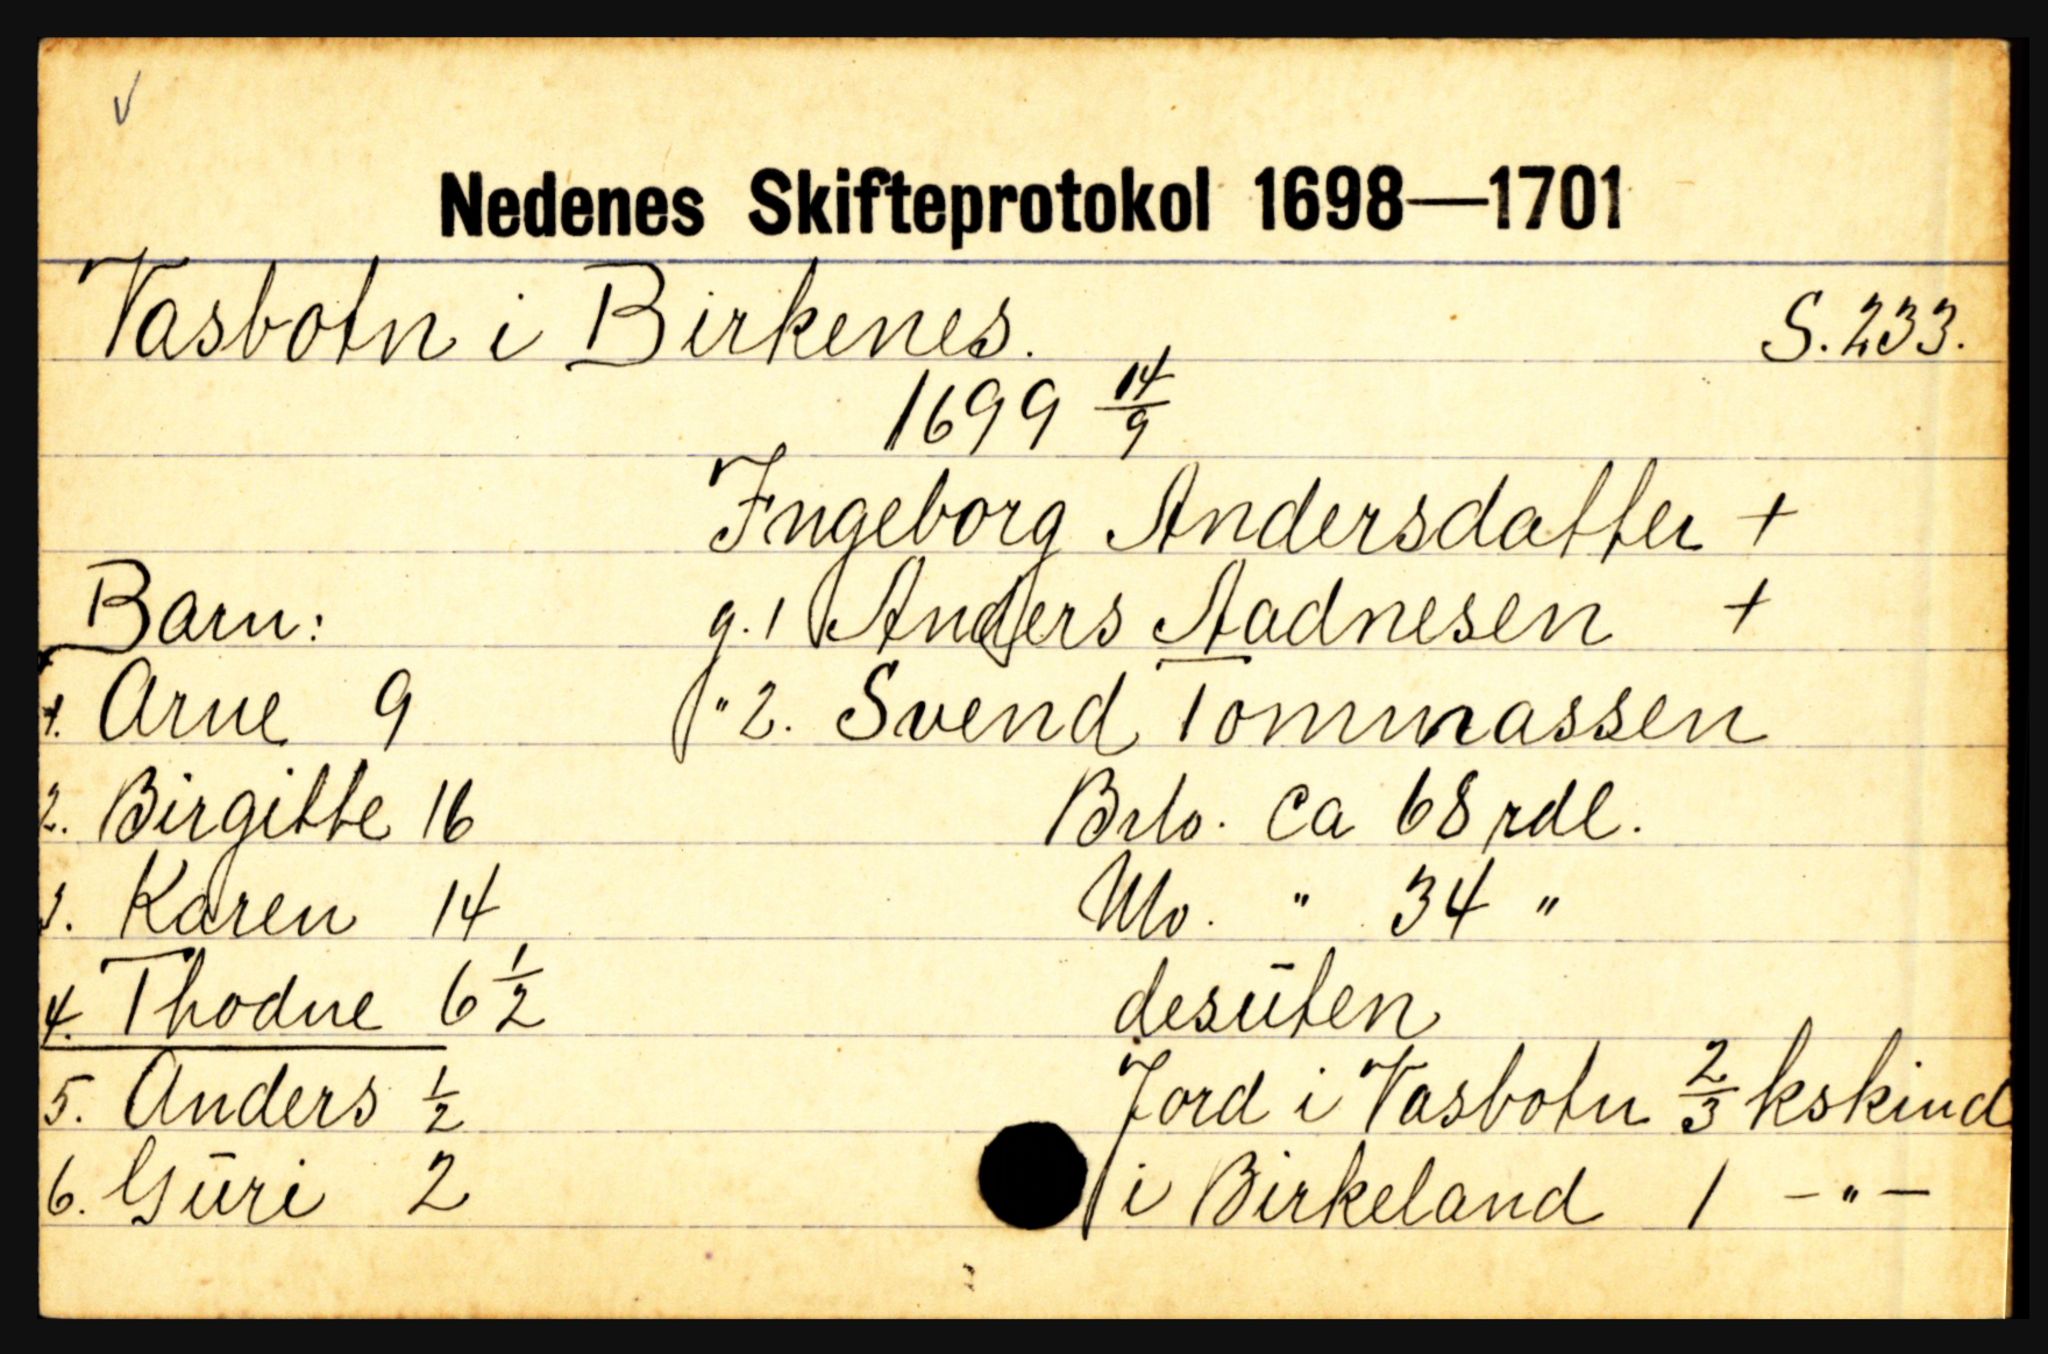 ✓
Nedenes Skifteprotokol 1698—1701
Vasbotn i Birkenes. S. 233.
1699 14/9
Ingeborg Andersdatter +
Barn: g. 1 Anders Aadnesen +
1. Arne 9 " 2. Svend Tommassen
2. Birgitte 16 Brto. ca 68 rdl.
3. Karen 14 Nto. " 34 "
4. Thodne 6 1/2 desūten
5. Anders 1/2 Jord i Vasbotn 2/3 kskind
6. Gūri 2 i Birkeland 1 -"-